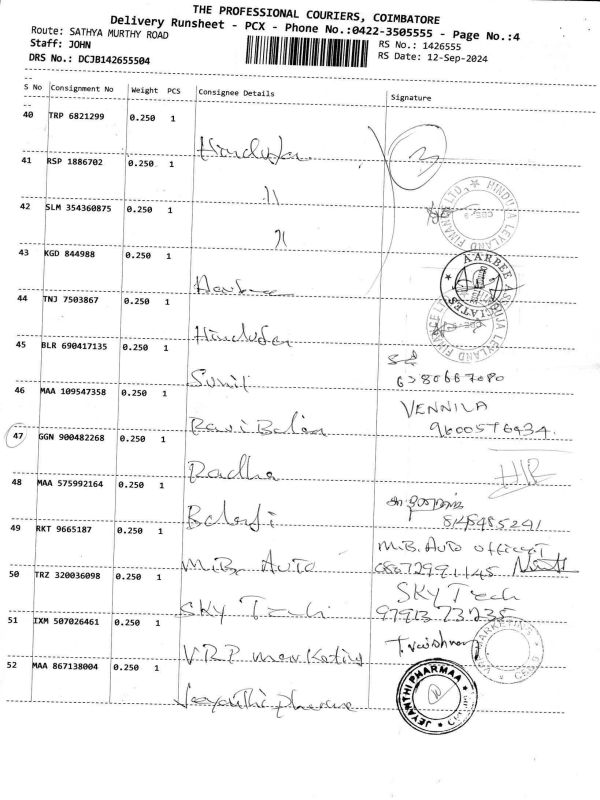 THE PROFESSIONAL COURIERS, COIMBATORE
Delivery Runsheet - PCX - Phone No.:0422-3505555 - Page No.:4
Route: SATHYA MURTHY ROAD
RS No.: 1426555
Staff: JOHN
RS Date: 12-Sep-2024
DRS No.: DCJB142655504
S No Consignment No Weight PCS Consignee Details Signature
40 TRP 6821299 0.250 1
Hinduja
3
41 RSP 1886702 0.250 1
〃
HINDUJA LEYLAND FINANCE LTD.
42 SLM 354360875 0.250 1
〃
43 KGD 844988 0.250 1
AARBEE ASSOCIATES
44 TNJ 7503867 0.250 1
Hinduja
HINDUJA LEYLAND FINANCE LTD.
45 BLR 690417135 0.250 1
Sunil
6380667080
46 MAA 109547358 0.250 1
VENNILA
9600576434.
47 GGN 900482268 0.250 1
Radha
48 MAA 575992164 0.250 1
Balaji
8148485241
49 RKT 9665187 0.250 1
M.B. AUTO
M.B. AUTO
50 TRZ 320036098 0.250 1
SKY Tech
SKY Tech
97913 73235
51 IXM 507026461 0.250 1
VRP Marketing
T. Vaishnavi
52 MAA 867138004 0.250 1
Jeyanthi pharma
JEYANTHI PHARMAA